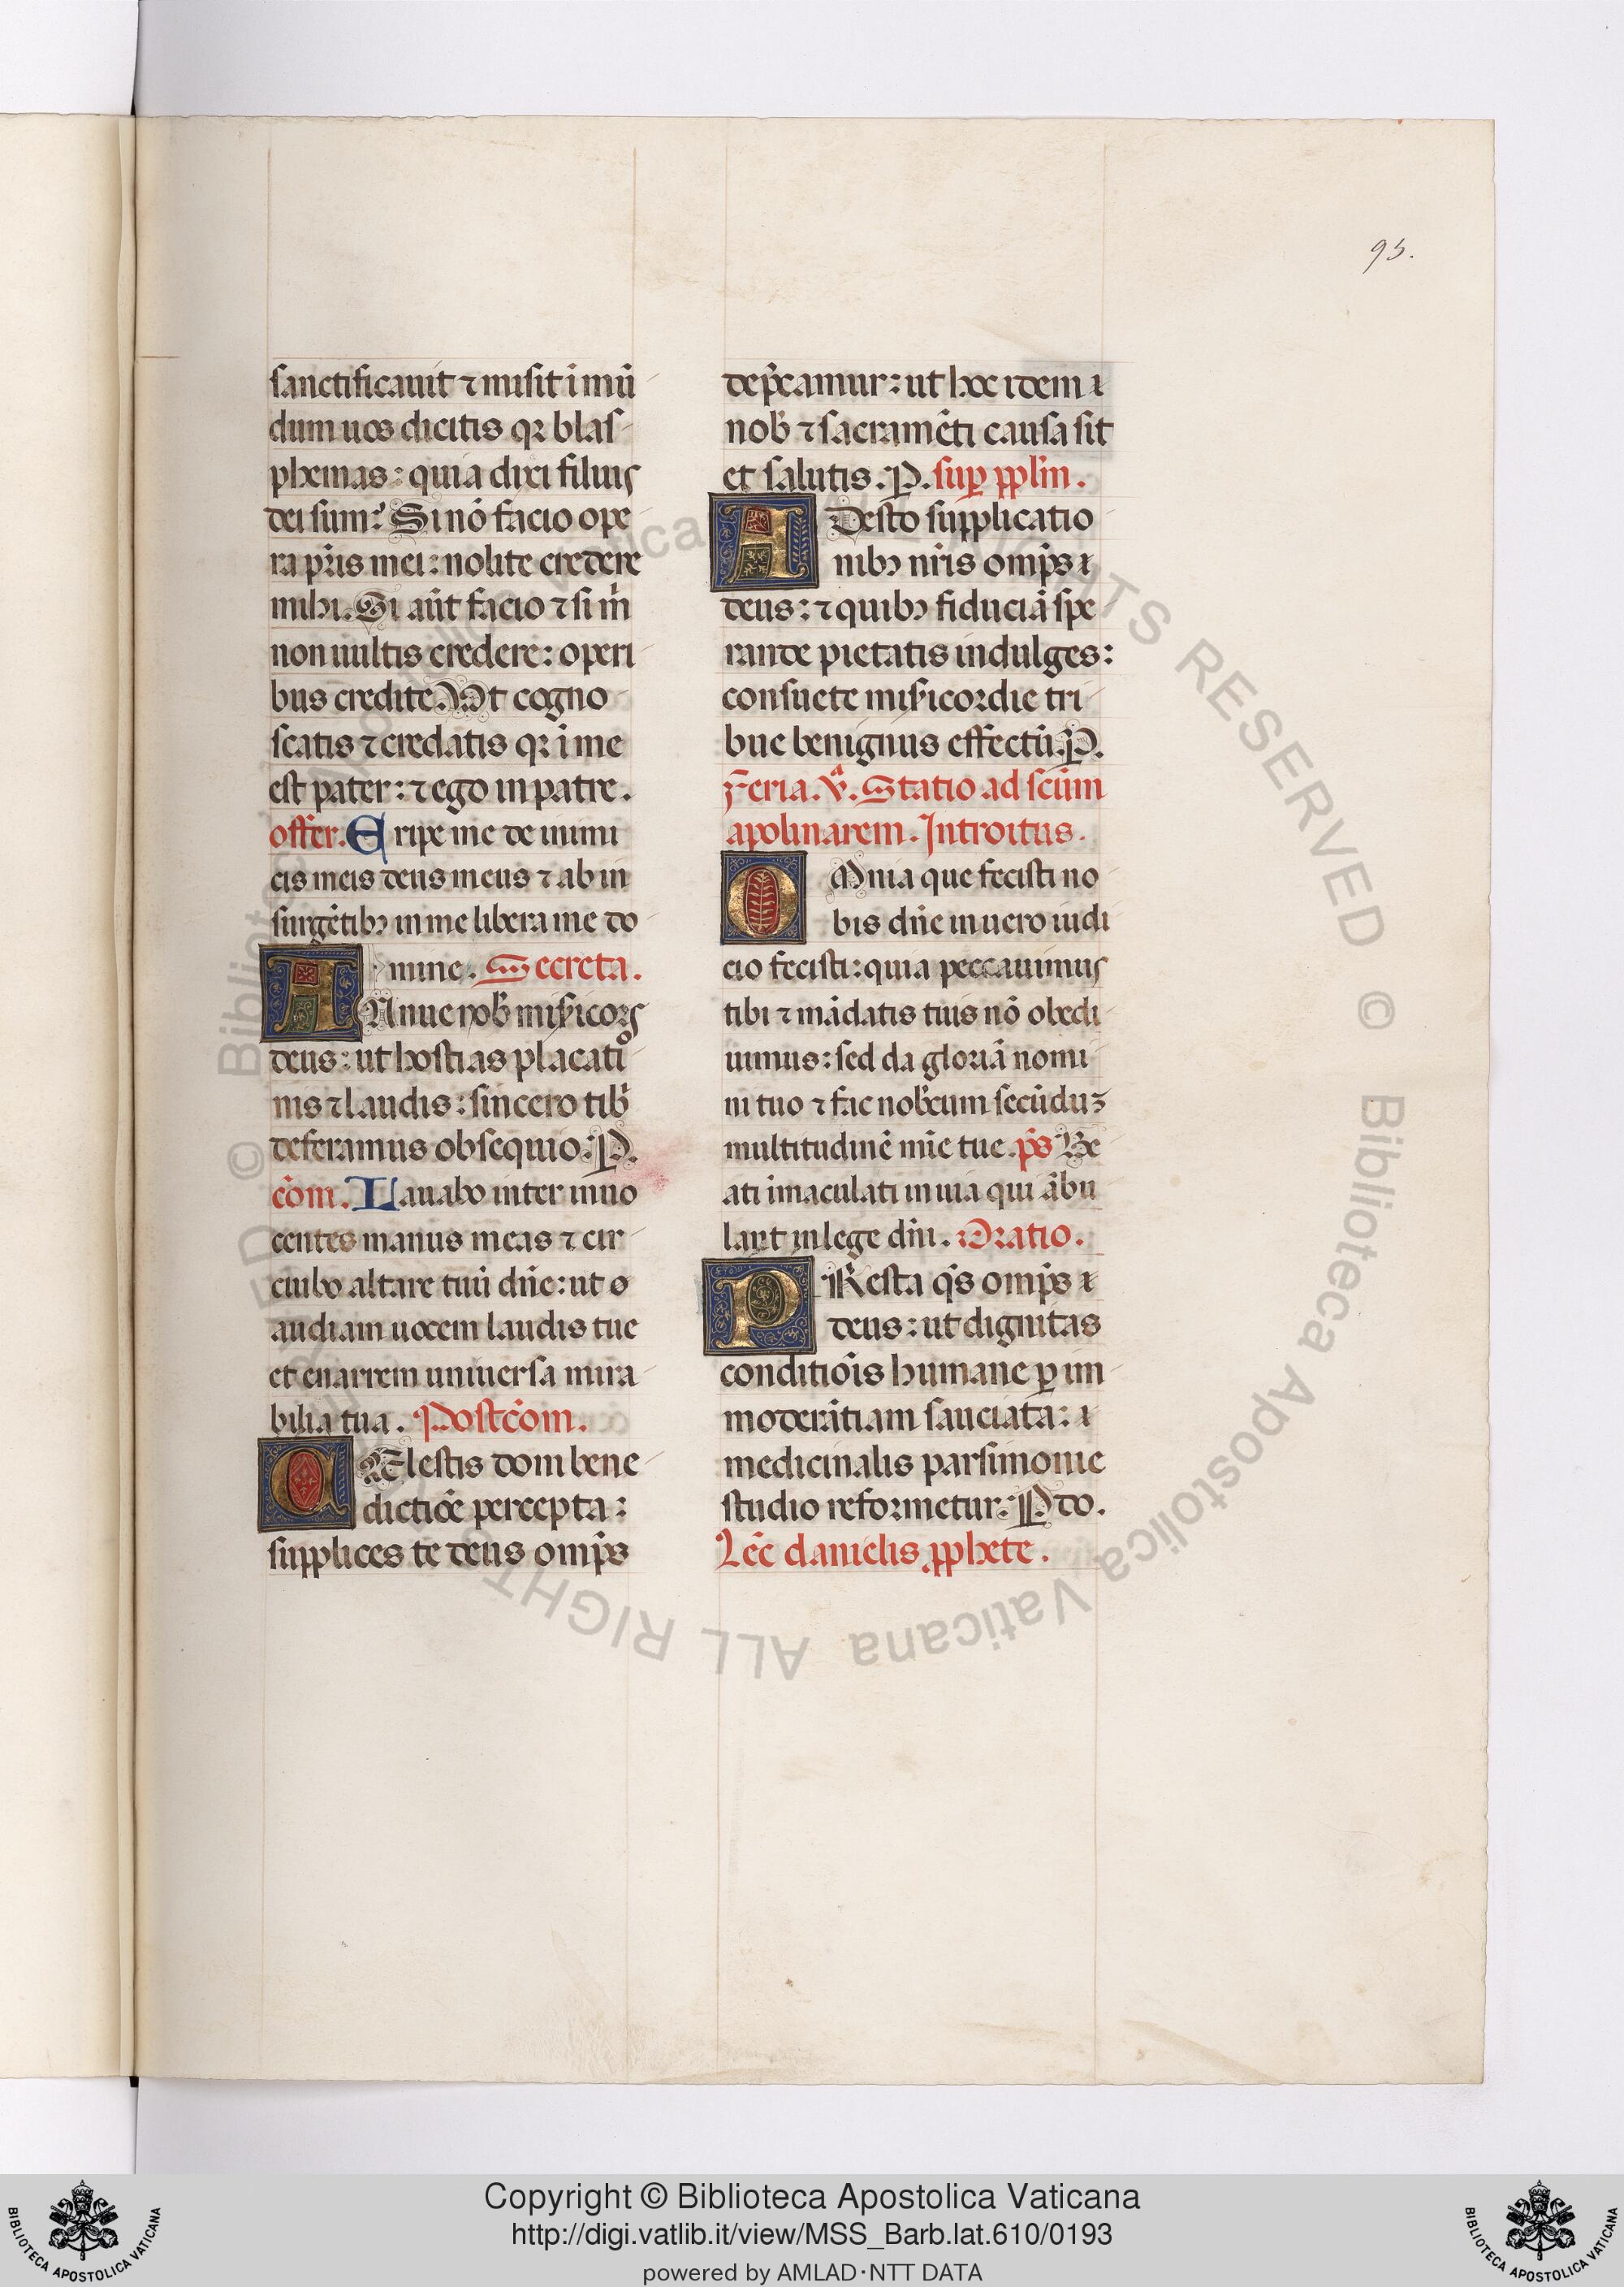 95.
sanctificauit ⁊ misit ī mū
dum uos dicitis qꝛ blas
phemas: quia dixi filius
dei sum? Si nō facio ope
ra pr̄is mei: nolite credere
mihi. Si aūt facio ⁊ si m̄
non uultis credere: operi
bus credite. Vt cogno
scatis ⁊ credatis qꝛ ī me
est pater: ⁊ ego in patre.
offer. Eripe me de inimi
cis meis deus meus ⁊ ab in
surgētibꝫ in me libera me do
mine. Secreta.
ANnue nob̄ misericors
deus: ut hostias placatio
nis ⁊ laudis: sincero tib̄
deferamus obsequio. P.
cōm. Lauabo inter inno
centes manus meas ⁊ cir
cuibo altare tuū dn̄e: ut
audiam uocem laudis tue
et enarrem uniuersa mira
bilia tua. Postcōm.
CElestis doni bene
dictiōe percepta:
supplices te deus omp̄s
dep̄camur: ut hoc idem
nob̄ ⁊ sacramēti causa sit
et salutis. P. sup̄ pplm̄.
ADesto supplicatio
nibꝫ nr̄is omp̄s
deus: ⁊ quibꝫ fiduciā spe
rande pietatis indulges:
consuete mis̄icordie tri
bue benignus effectū. P.
Feria. vͣ. Statio ad scūm
apolinarem. Introitus.
OMnia que fecisti no
bis dn̄e in uero iudi
cio fecisti: quia peccauimus
tibi ⁊ mādatis tuis nō obedi
uimus: sed da gloriā nomi
ni tuo ⁊ fac nob̄cum secūduꝫ
multitudinē mīe tue. p̄s Be
ati īmaculati in uia qui ābu
lant in lege dn̄i. Oratio.
PResta qs̄ omp̄s
deus: ut dignitas
conditiōis humane ꝑ im
moderātiam sauciata:
medicinalis parsimonie
studio reformetur. P do.
Lēc danielis pphete.
© Biblioteca Apostolica Vaticana ALL RIGHTS RESERVED
Copyright © Biblioteca Apostolica Vaticana
http://digi.vatlib.it/view/MSS_Barb.lat.610/0193
powered by AMLAD·NTT DATA
BIBLIOTECA APOSTOLICA VATICANA
BIBLIOTECA APOSTOLICA VATICANA